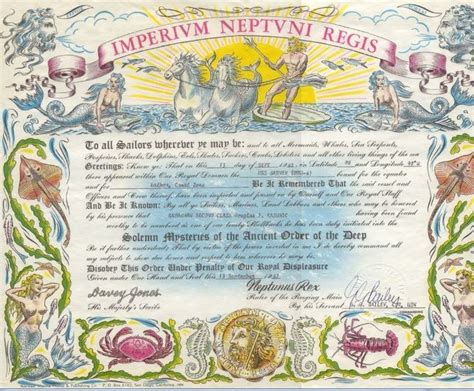 IMPERIVM NEPTVNI REGIS
To all Sailors wherever ye may be: and to all Mermaids, Whales, Sea Serpents,
Porpoises, Sharks, Dolphins, Eels, Skates, Suckers, Crabs, Lobsters and all other living things of the sea
Greetings: Know ye: That on this 13 day of in Latitude 00 and Longitude
there appeared within Our Royal Domain the bound for the equator and
for Be It Remembered That the said vessel and
Officers and Crew thereof, have been inspected and passed on by Ourself and our Royal Staff
And Be It Known: By all ye Sailors, Marines, Land Lubbers and others who may be honored
by his presence that SECOND CLASS having been found
worthy to be numbered as one of our trusty Shellbacks he has been duly initiated into the
Solemn Mysteries of the Ancient Order of the Deep
Be it further understood: That by virtue of the power invested in me I do hereby command all
my subjects to show due honor and respect to him wherever he may be
Disobey This Order Under Penalty of Our Royal Displeasure
Given under Our Hand and Seal this 13 September
Davey Jones
His Majesty's Scribe
Neptunus Rex
Ruler of the Raging Main
By His Servant